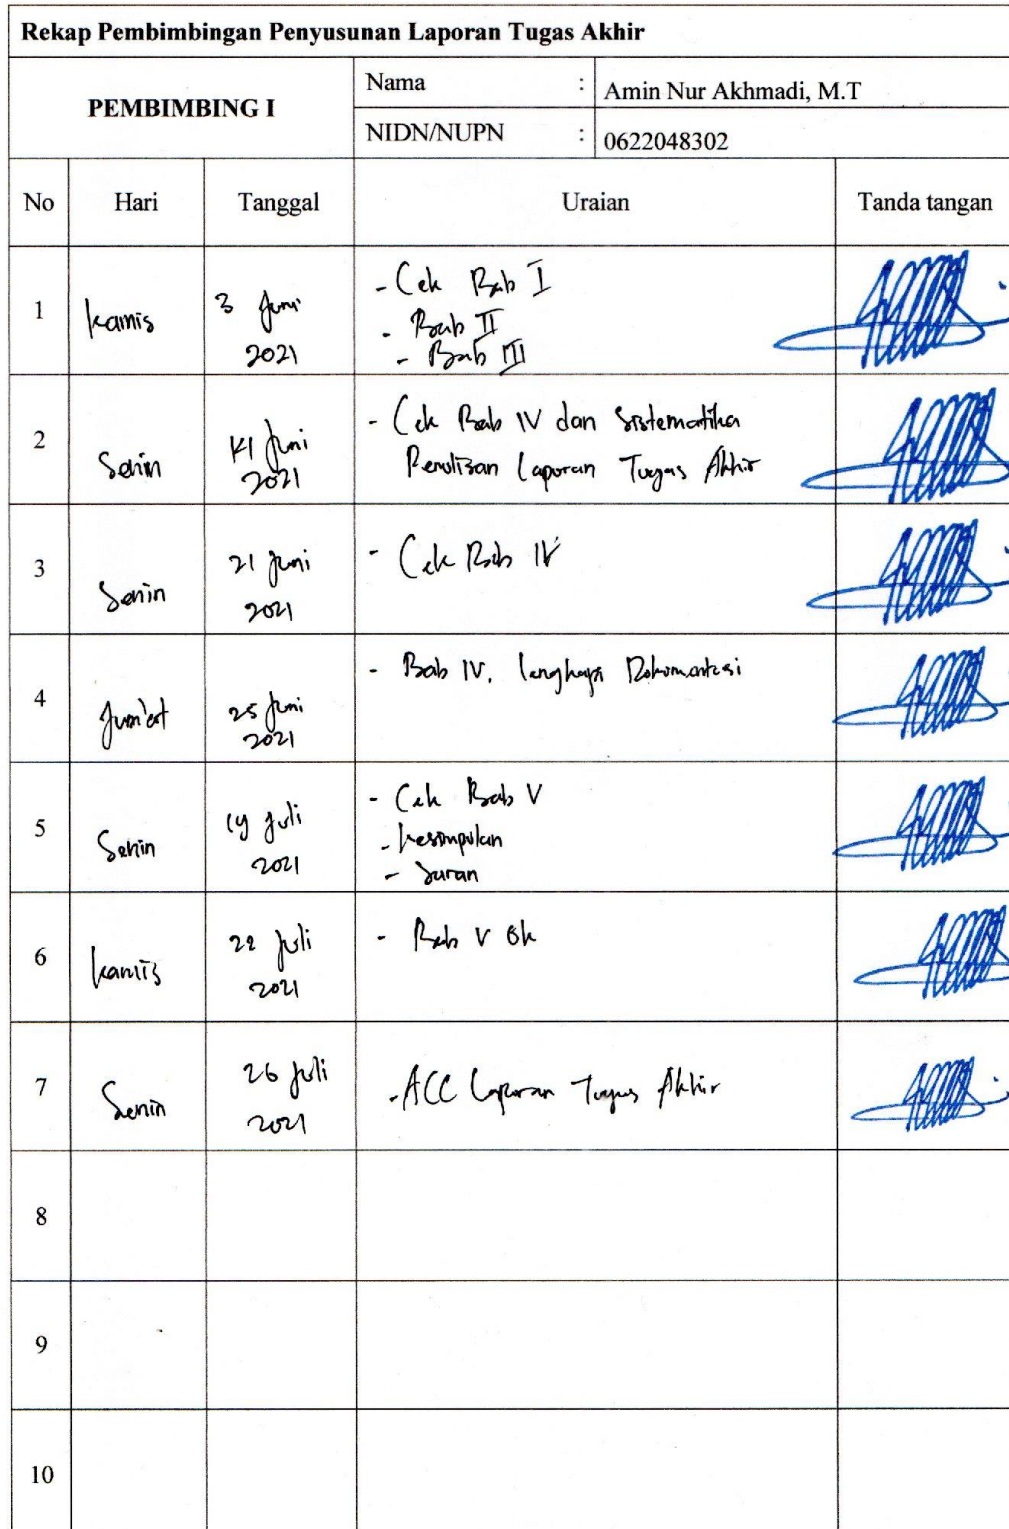 Rekap Pembimbingan Penyusunan Laporan Tugas Akhir
PEMBIMBING I
Nama : Amin Nur Akhmadi, M.T
NIDN/NUPN : 0622048302
No Hari Tanggal Uraian Tanda tangan
1 Kamis 3 Juni 2021
- Cek Bab I
- Bab II
- Bab III
2 Senin 14 Juni 2021
- Cek Bab IV dan Sistematika
Penulisan Laporan Tugas Akhir
3 Senin 21 Juni 2021
- Cek Bab IV
4 Jum'at 25 Juni 2021
- Bab IV. lengkapi Dokumentasi
5 Senin 19 Juli 2021
- Cek Bab V
- Kesimpulan
- Saran
6 Kamis 22 Juli 2021
- Bab V Ok
7 Senin 26 Juli 2021
- ACC Laporan Tugas Akhir
8
9
10